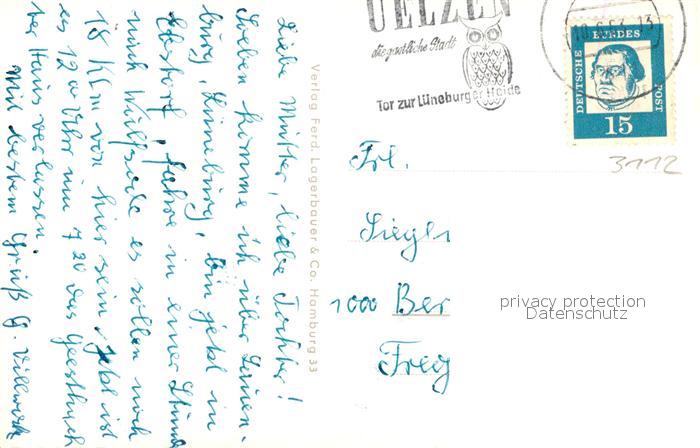 UELZEN
die gastliche Stadt
Tor zur Lüneburger Heide
DEUTSCHE BUNDES POST
15
3112
Verlag Ferd. Lagerbauer & Co., Hamburg 33
Liebe Mutter, liebe Tochter!
Soeben komme ich über Lauen-
burg, Lüneburg, bin jetzt in
Ebstorf, fahre in einer Stund
nach es sollen noch
18 Klm von hier sein. Jetzt ist
es 12 Uhr um 7 20 das
ter Haus verlassen.
Mit bestem Gruß G.
Frl.
Siegli
1000 Ber
Freg
privacy protection
Datenschutz